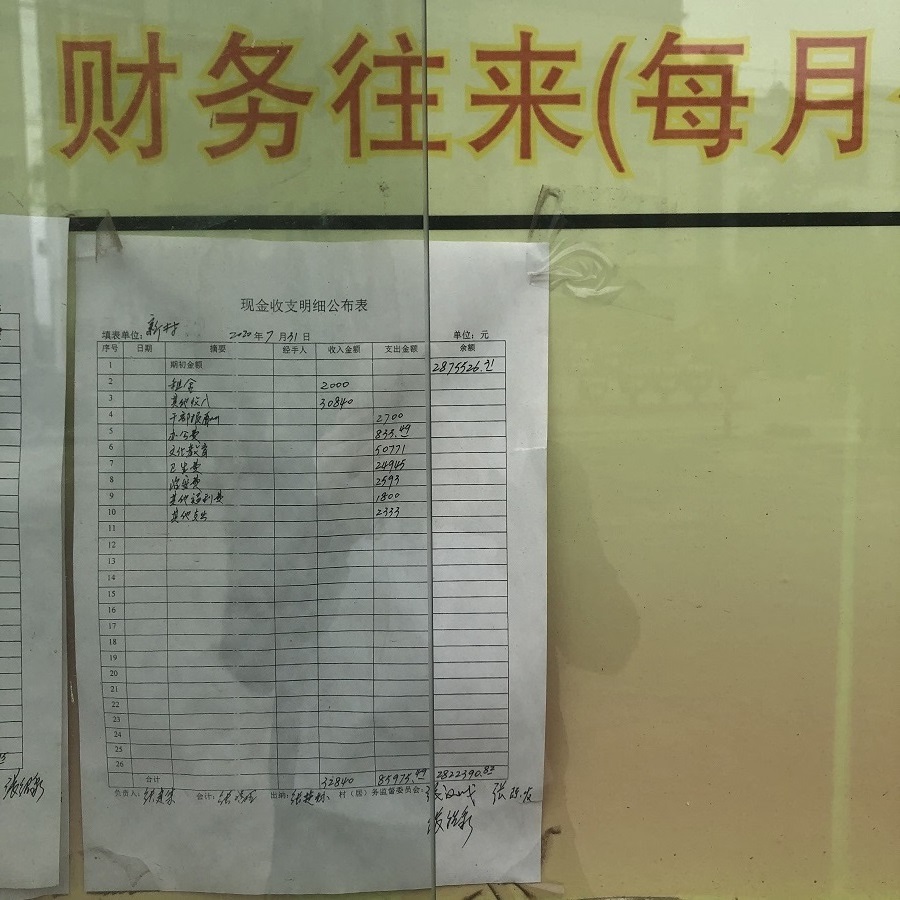 财务往来(每月
现金收支明细公布表
填表单位: 新村 2020年7月31日 单位: 元
序号 日期 摘要 经手人 收入金额 支出金额 余额
1 期初金额 2875526.31
2 租金 2000
3 其他收入 30840
4 2700
5 办公费 833.49
6 文化教育 50771
7 卫生费 24945
8 治安费 2593
9 其他福利费 1800
10 其他支出 2333
11
12
13
14
15
16
17
18
19
20
21
22
23
24
25
26
合计 32840 85975.49 2822390.82
负责人: 会计: 出纳: 村(居)务监督委员会: